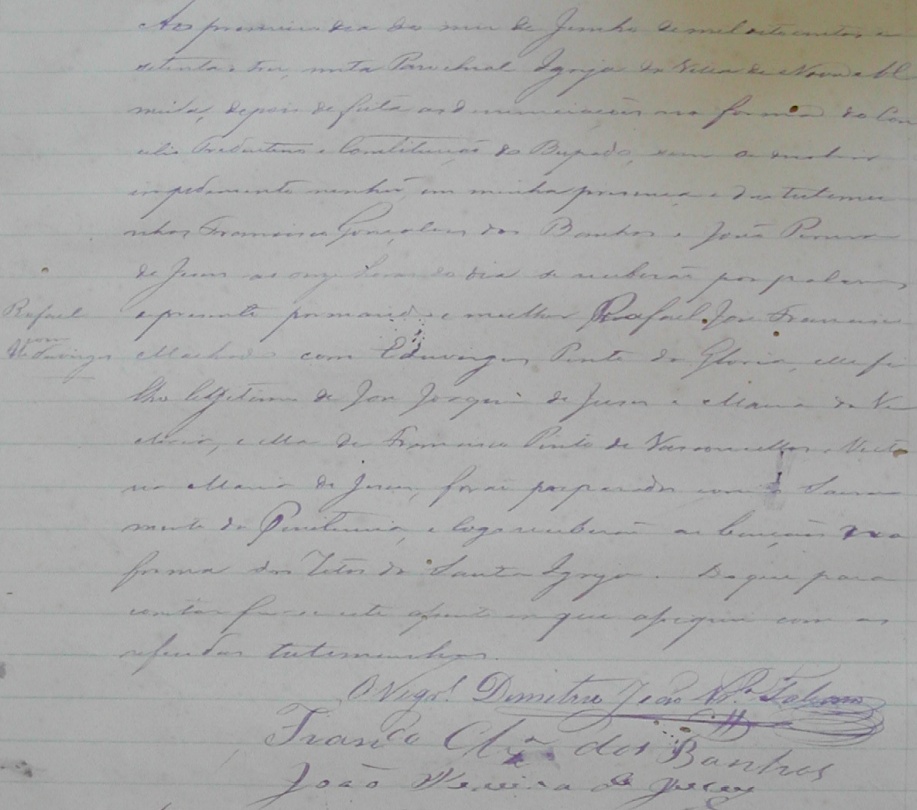 Aos primeiro dia do mes de Junho de mil oito centos e
setenta e tres, nesta Parochial Igreja da Villa de Nova Al
meida, depois de feita as denunciacoes na forma do Con
cilio Tredentino e Constituição do Bispado, sem
impedimento nenhũ, em minha presença e das testemu
nhas Francisco Gonçalves dos Banhos e João Pereira
de Jesus as onze horas do dia se receberão por palavras
e presente por marido e mulher Rafael Jose Francisco
Rafael
com
Machado com Eduvirges Pinto da Gloria, elle fi
lho legitimo de Jose Joaquim de Jesus e Maria da Ve
e ella de Francisco Pinto de Vasconcellos e Victo
ria Maria de Jesus, forão preparados com o Sacra
mento da Penitencia, e logo receberão as bençãos na
forma dos Ritos da Santa Igreja. Do que para
constar fiz este que asignei com as
referidas testemunhas.
O Vigr.º Demetrio João
Franco Glz dos Banhos
João Pereira de Jesus